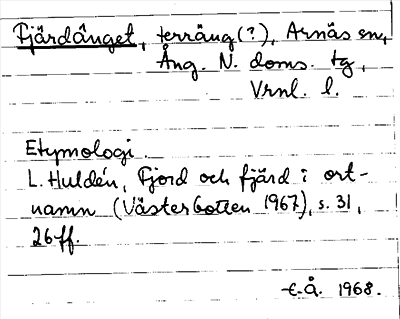 Fjärdånget, terräng (?), Arnäs sn,
Ång. N. doms. tg,
Vrnl. l.
Etymologi.
L. Huldén, Fjord och fjärd i ort-
namn (Västerbotten 1967), s. 31,
26 ff.
E.Å. 1968.